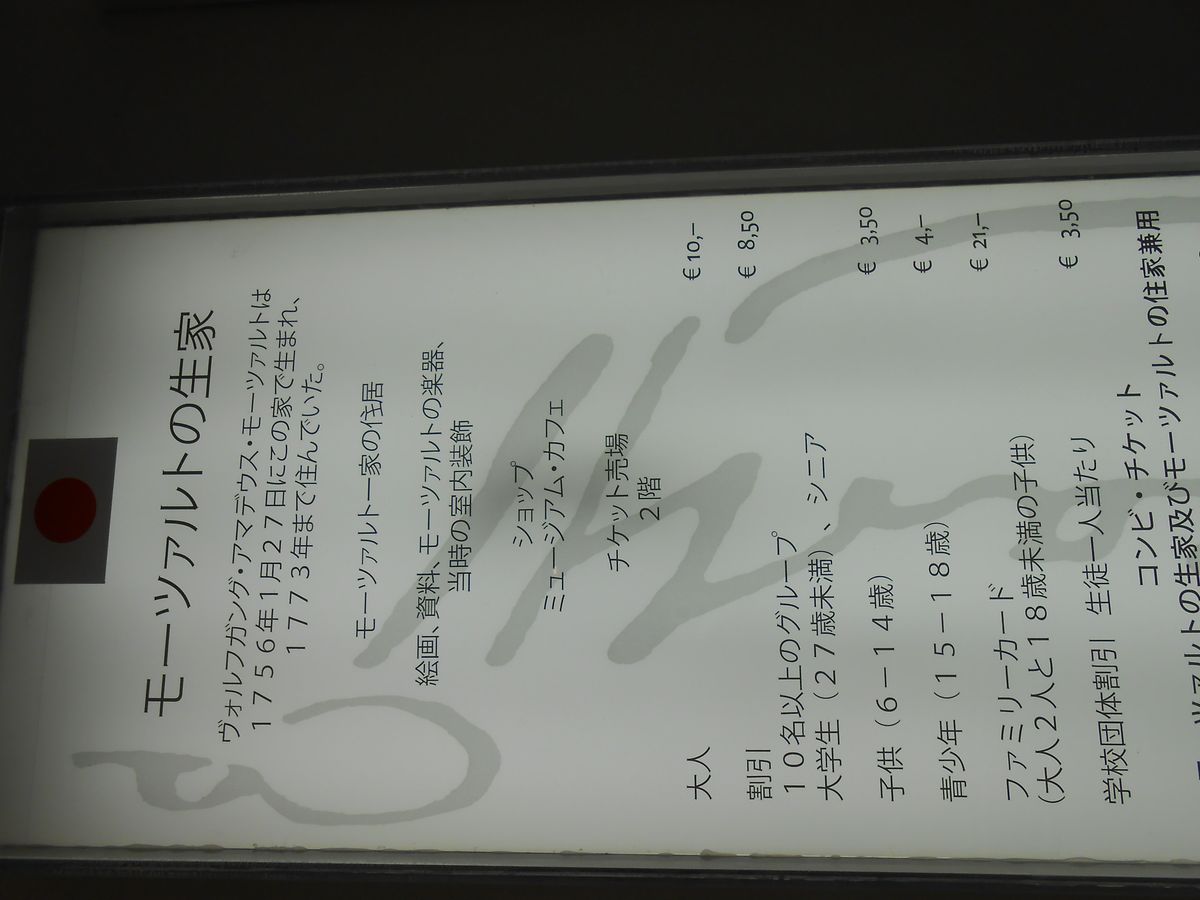 モーツァルトの生家
ヴォルフガング・アマデウス・モーツァルトは
１７５６年１月２７日にこの家で生まれ、
１７７３年まで住んでいた。
モーツァルト一家の住居
絵画、資料、モーツァルトの楽器、
当時の室内装飾
ショップ
ミュージアム・カフェ
チケット売場
２階
大人 € 10,–
割引 € 8,50
１０名以上のグループ
大学生（２７歳未満）、シニア
子供（６－１４歳） € 3,50
青少年（１５－１８歳） € 4,–
ファミリーカード € 21,–
（大人２人と１８歳未満の子供）
学校団体割引 生徒一人当たり € 3,50
コンビ・チケット
ァルトの生家及びモーツァルトの住家兼用